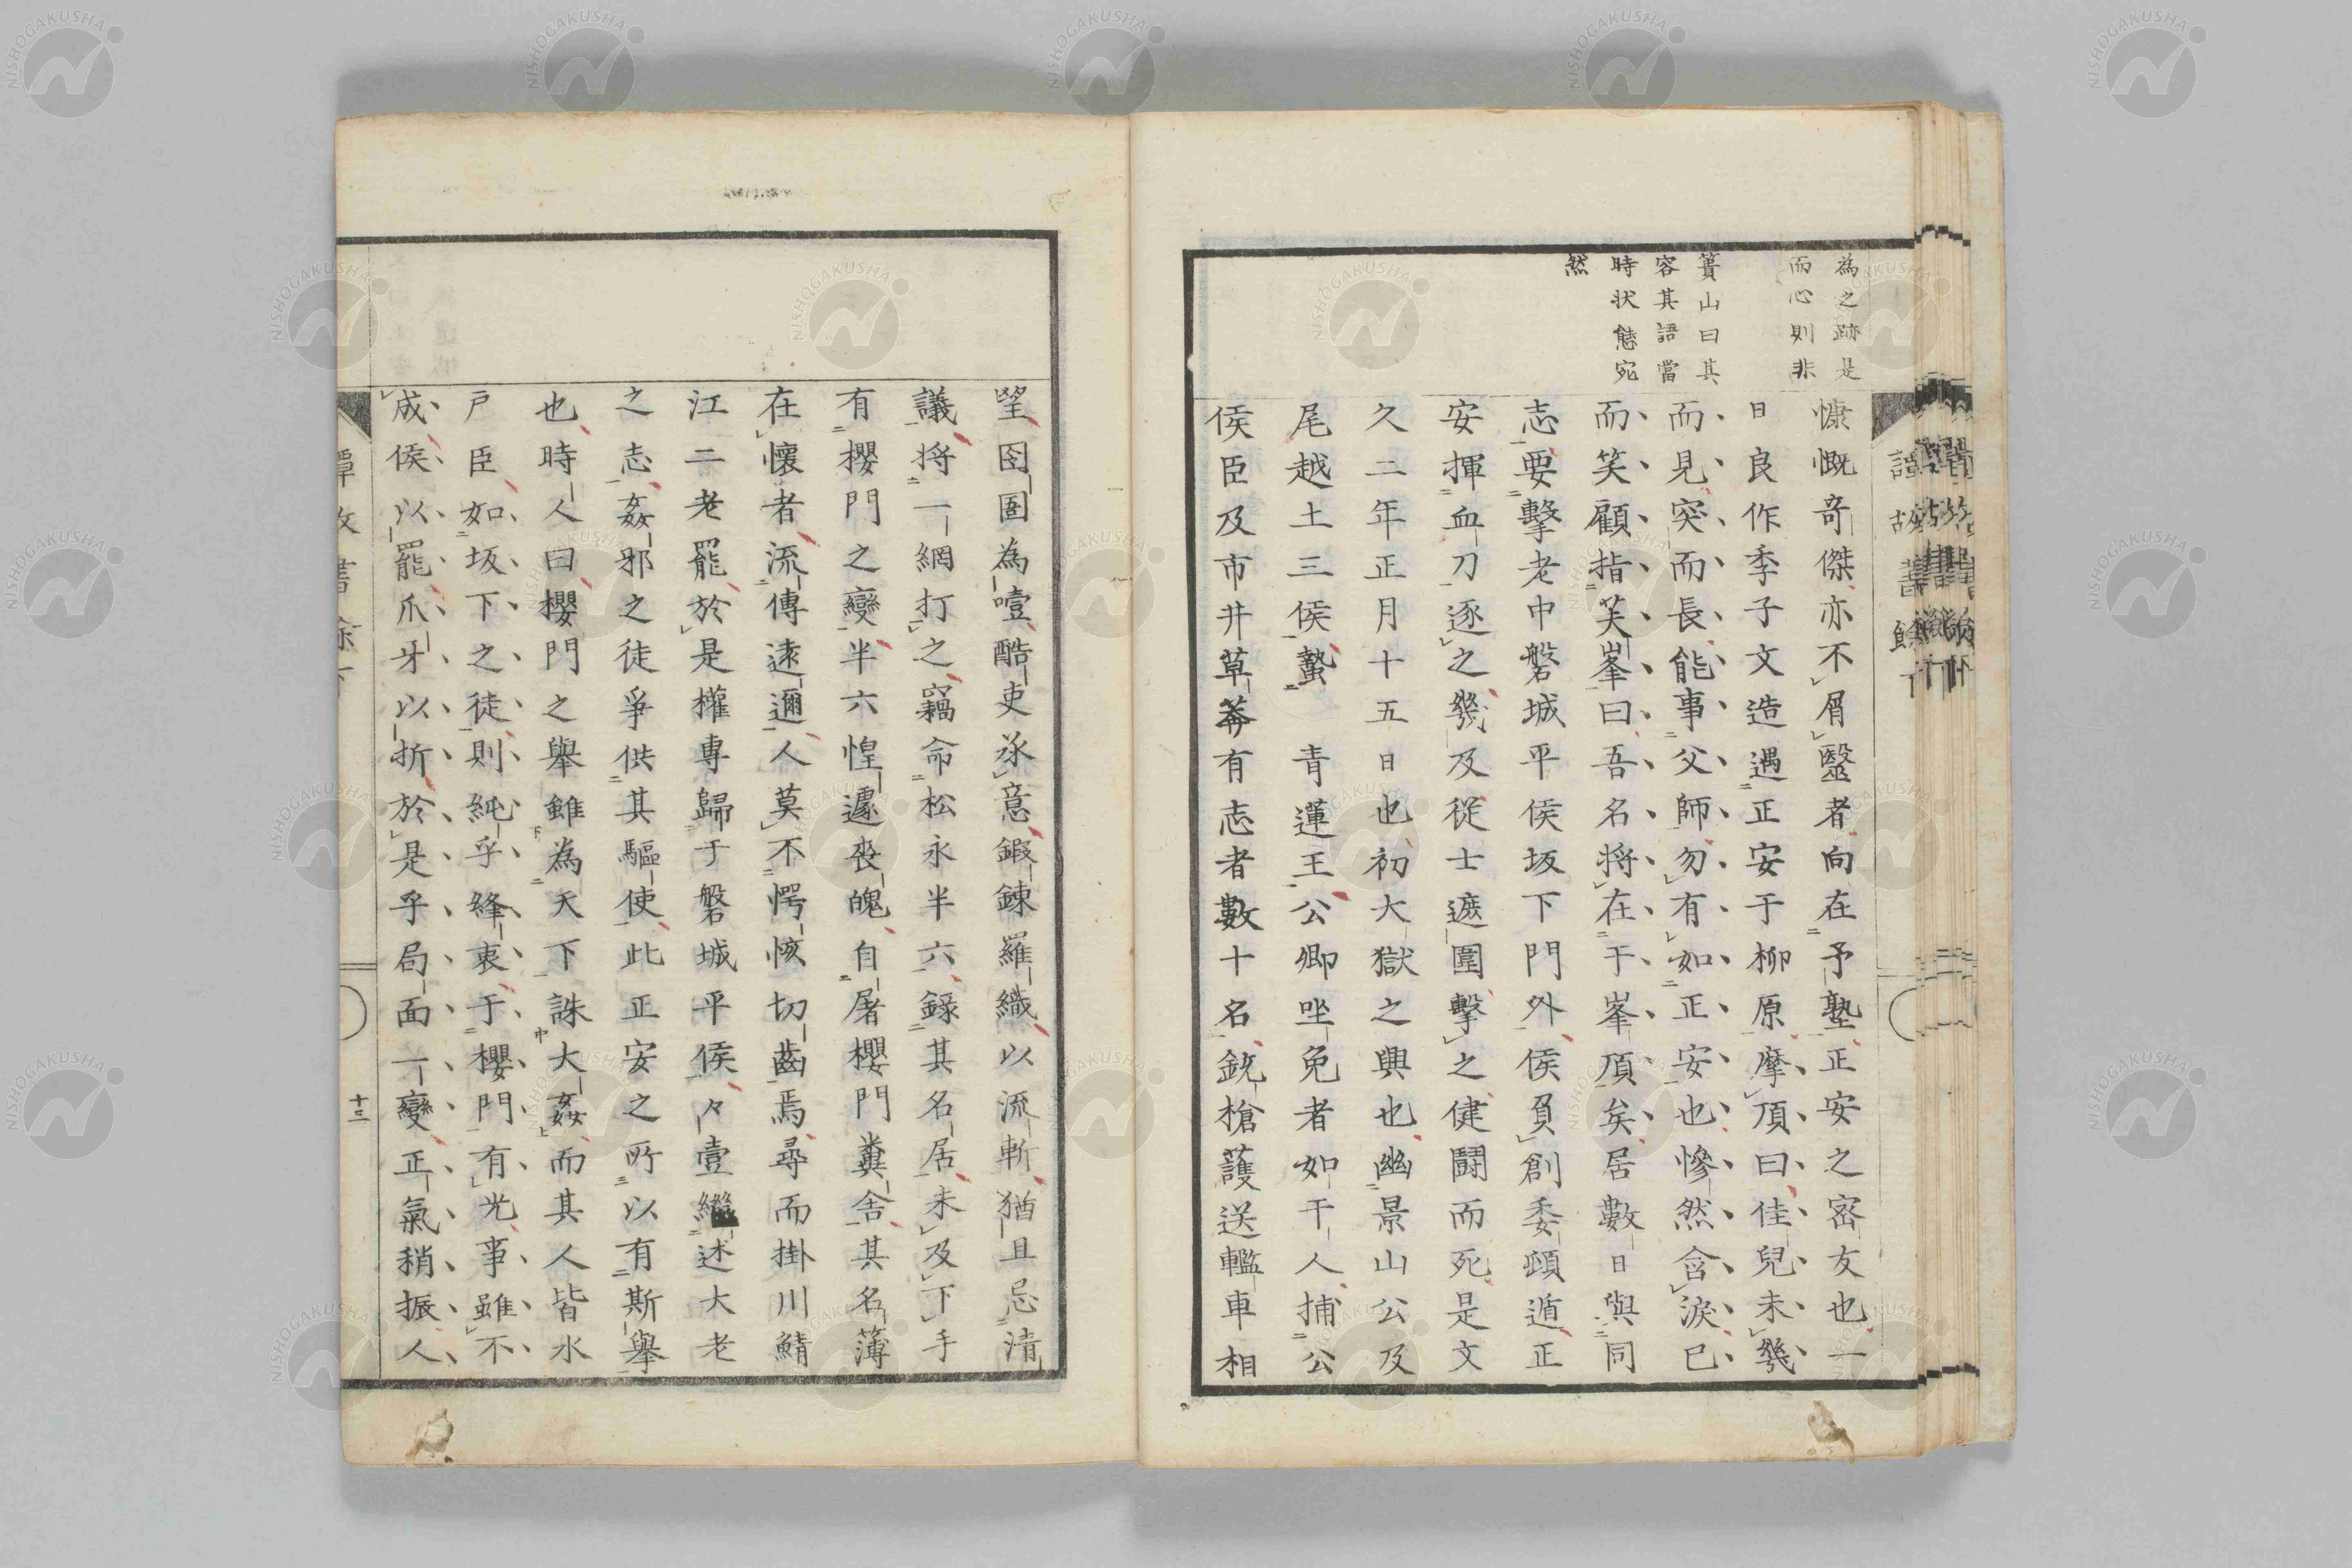 為之跡是
而心則非
簣山曰其
容其語當
時状態宛
然
慷慨奇傑亦不屑毉者向在予塾正安之密友也一
日良作季子文造遇正安于柳原摩頂曰佳兒未幾
而見突而長能事父師勿有如正安也慘然含淚已
而笑顧指芙峯曰吾名将在于峯頂矣居數日與同
志要擊老中磐城平侯坂下門外侯負創委頓遁正
安揮血刀逐之幾及從士遮圍擊之健闘而死是文
久二年正月十五日也初大獄之興也幽景山公及
尾越土三侯蟄 青蓮王公卿坐免者如干人捕公
侯臣及市井草莾有志者數十名銃槍護送轞車相
望囹圄為噎酷吏丞意鍜鍊羅織以流斬猶且忌清
議将一網打之竊命松永半六錄其名居未及下手
有櫻門之變半六惶遽喪魄自屠櫻門糞舍其名簿
在懷者流傳遠邇人莫不愕悚切齒焉尋而掛川鯖
江二老罷於是權專歸于磐城平侯々壹繼述大老
之志姦邪之徒爭供其驅使此正安之所以有斯舉
也時人曰櫻門之舉雖為天下誅大姦而其人皆水
戸臣如坂下之徒則純乎絳衷于櫻門有光事雖不
成侯以罷爪牙以折於是乎局面一變正氣稍振人
譚故書餘下
十三
NISHOGAKUSHA